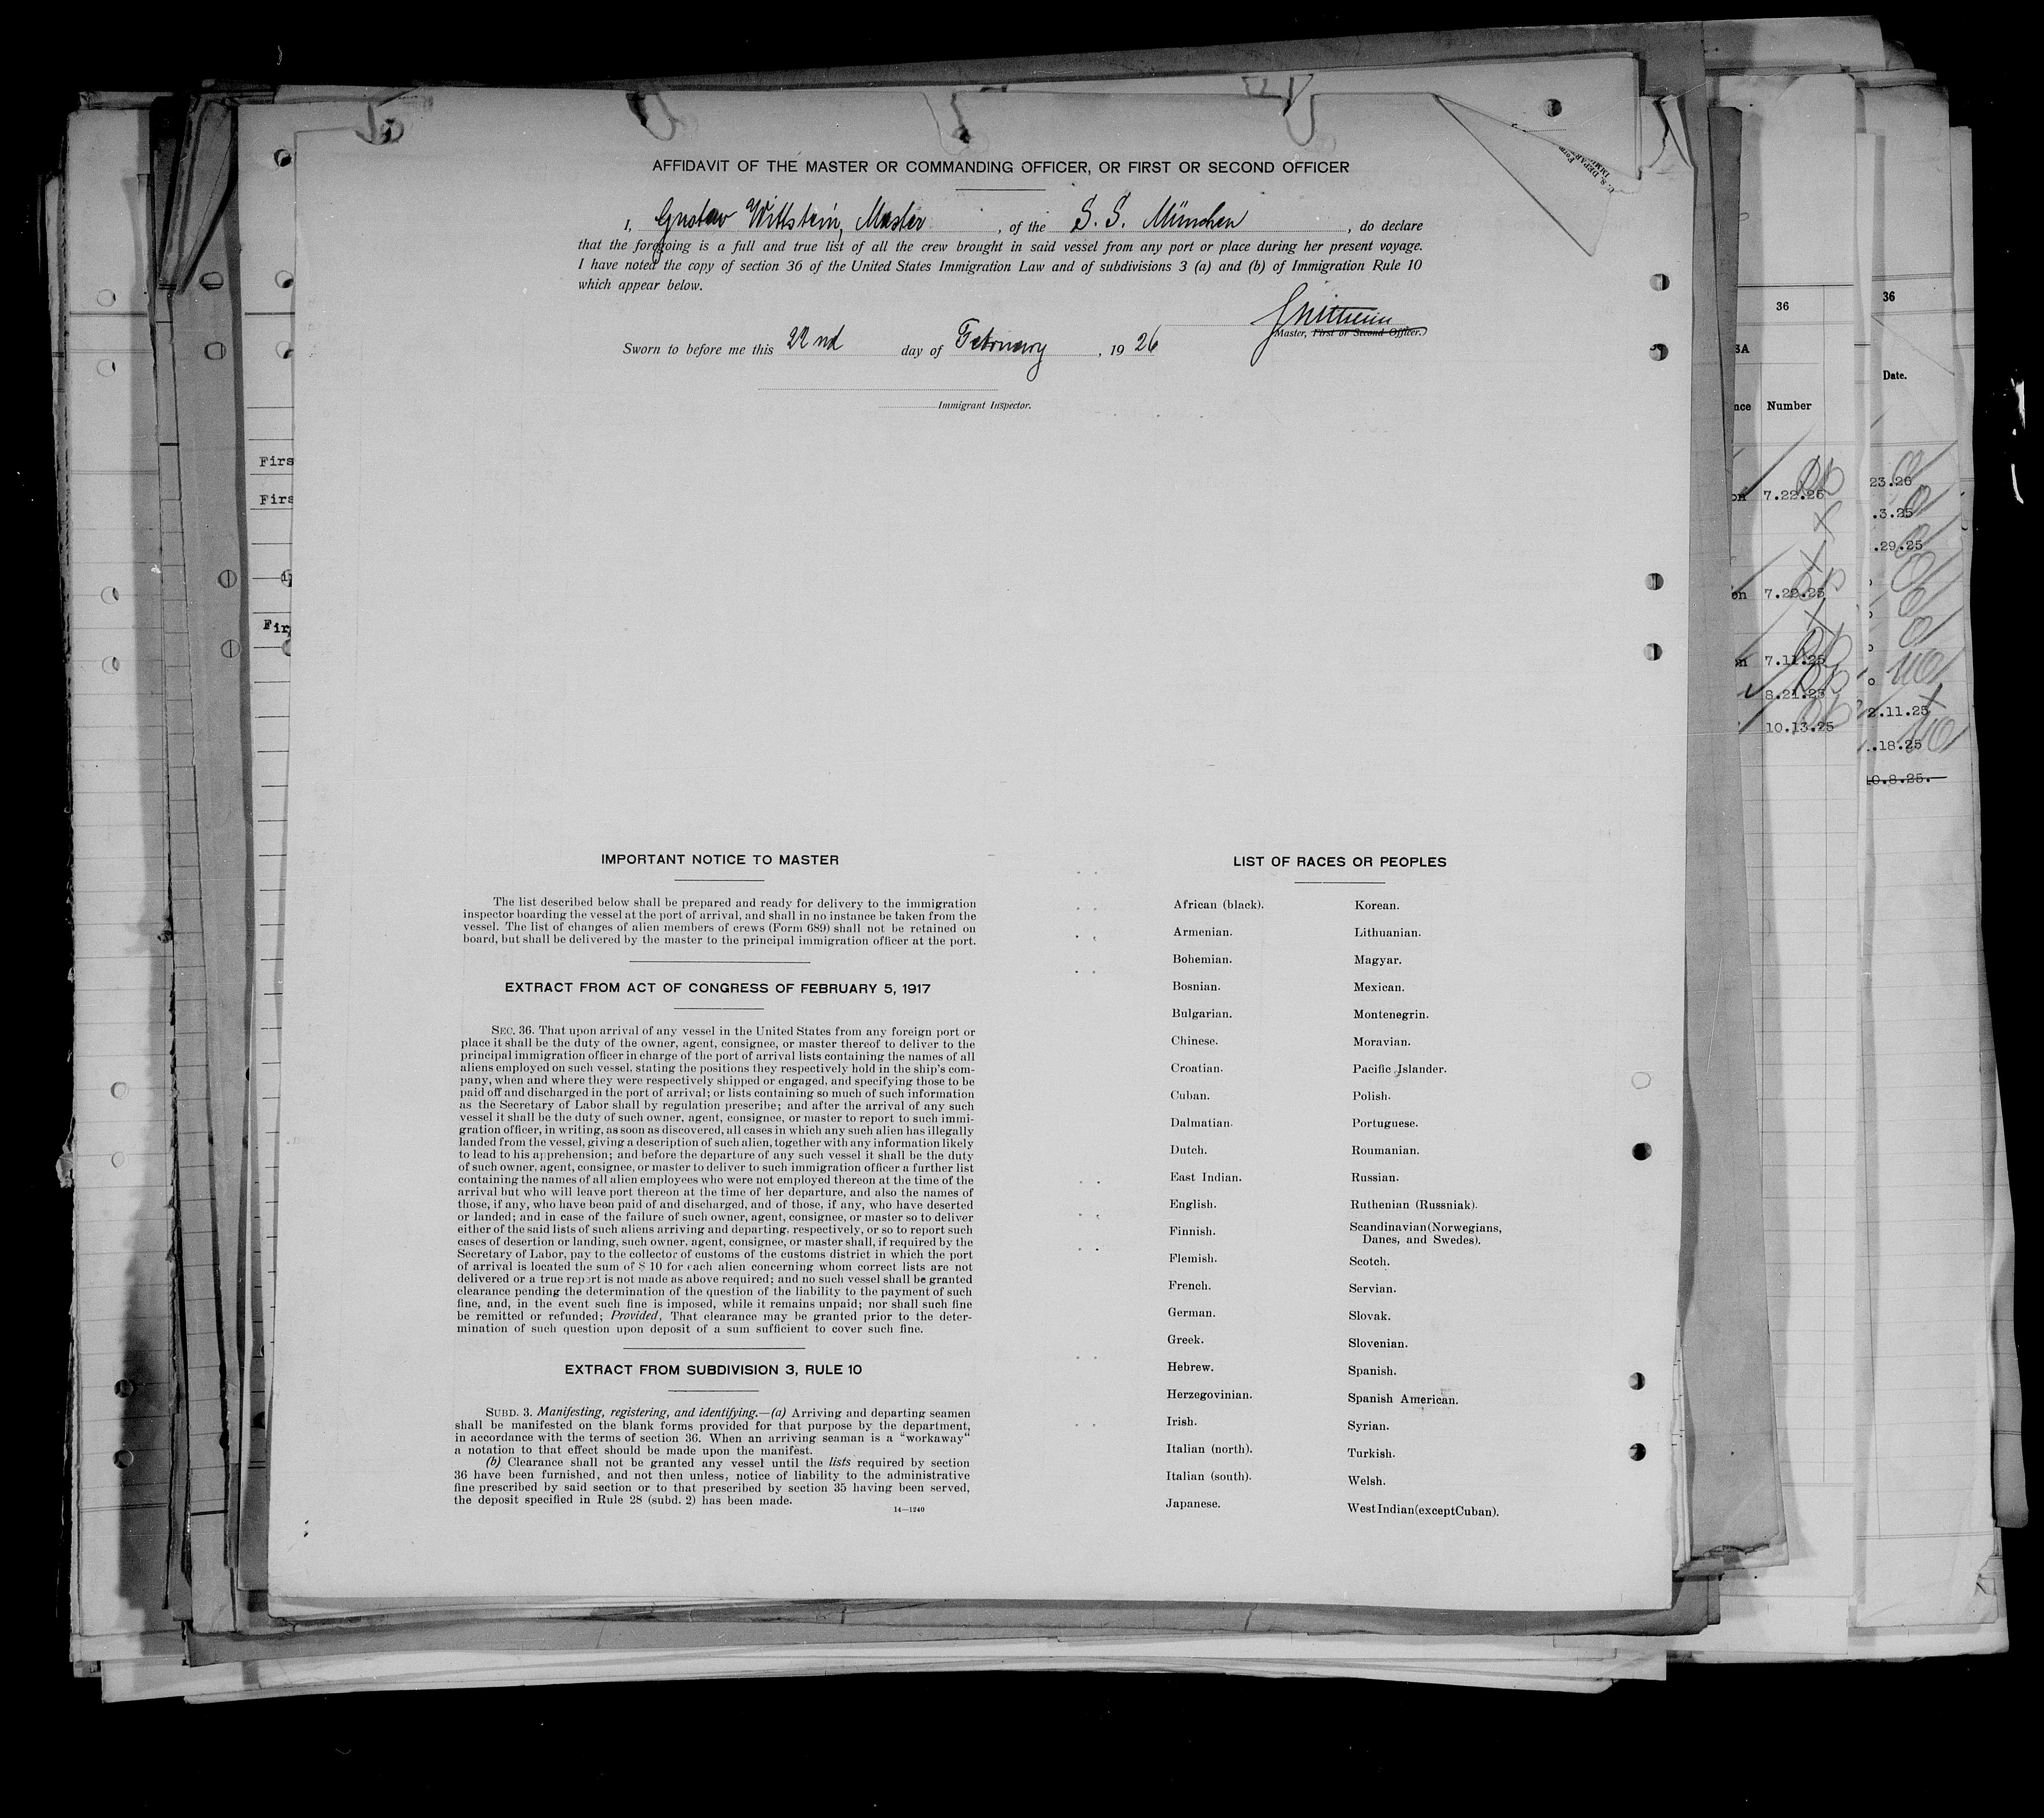 AFFIDAVIT OF THE MASTER OR COMMANDING OFFICER, OR FIRST OR SECOND OFFICER
I, Gustav Wittstein, Master, of the S. S. München, do declare
that the foregoing is a full and true list of all the crew brought in said vessel from any port or place during her present voyage.
I have noted the copy of section 36 of the United States Immigration Law and of subdivisions 3 (a) and (b) of Immigration Rule 10
which appear below.
Master, First or Second Officer.
Sworn to before me this 22nd day of February, 1926
Immigrant Inspector.
IMPORTANT NOTICE TO MASTER
The list described below shall be prepared and ready for delivery to the immigration
inspector boarding the vessel at the port of arrival, and shall in no instance be taken from the
vessel. The list of changes of alien members of crews (Form 689) shall not be retained on
board, but shall be delivered by the master to the principal immigration officer at the port.
EXTRACT FROM ACT OF CONGRESS OF FEBRUARY 5, 1917
SEC. 36. That upon arrival of any vessel in the United States from any foreign port or
place it shall be the duty of the owner, agent, consignee, or master thereof to deliver to the
principal immigration officer in charge of the port of arrival lists containing the names of all
aliens employed on such vessel, stating the positions they respectively hold in the ship's com-
pany, when and where they were respectively shipped or engaged, and specifying those to be
paid off and discharged in the port of arrival; or lists containing so much of such information
as the Secretary of Labor shall by regulation prescribe; and after the arrival of any such
vessel it shall be the duty of such owner, agent, consignee, or master to report to such immi-
gration officer, in writing, as soon as discovered, all cases in which any such alien has illegally
landed from the vessel, giving a description of such alien, together with any information likely
to lead to his apprehension; and before the departure of any such vessel it shall be the duty
of such owner, agent, consignee, or master to deliver to such immigration officer a further list
containing the names of all alien employees who were not employed thereon at the time of the
arrival but who will leave port thereon at the time of her departure, and also the names of
those, if any, who have been paid of and discharged, and of those, if any, who have deserted
or landed; and in case of the failure of such owner, agent, consignee, or master so to deliver
either of the said lists of such aliens arriving and departing, respectively, or so to report such
cases of desertion or landing, such owner, agent, consignee, or master shall, if required by the
Secretary of Labor, pay to the collector of customs of the customs district in which the port
of arrival is located the sum of $ 10 for each alien concerning whom correct lists are not
delivered or a true report is not made as above required; and no such vessel shall be granted
clearance pending the determination of the question of the liability to the payment of such
fine, and, in the event such fine is imposed, while it remains unpaid; nor shall such fine
be remitted or refunded; Provided, That clearance may be granted prior to the deter-
mination of such question upon deposit of a sum sufficient to cover such fine.
EXTRACT FROM SUBDIVISION 3, RULE 10
SUBD. 3. Manifesting, registering, and identifying.—(a) Arriving and departing seamen
shall be manifested on the blank forms provided for that purpose by the department,
in accordance with the terms of section 36. When an arriving seaman is a "workaway"
a notation to that effect should be made upon the manifest.
(b) Clearance shall not be granted any vessel until the lists required by section
36 have been furnished, and not then unless, notice of liability to the administrative
fine prescribed by said section or to that prescribed by section 35 having been served,
the deposit specified in Rule 28 (subd. 2) has been made.
14—1240
LIST OF RACES OR PEOPLES
African (black).
Armenian.
Bohemian.
Bosnian.
Bulgarian.
Chinese.
Croatian.
Cuban.
Dalmatian.
Dutch.
East Indian.
English.
Finnish.
Flemish.
French.
German.
Greek.
Hebrew.
Herzegovinian.
Irish.
Italian (north).
Italian (south).
Japanese.
Korean.
Lithuanian.
Magyar.
Mexican.
Montenegrin.
Moravian.
Pacific Islander.
Polish.
Portuguese.
Roumanian.
Russian.
Ruthenian (Russniak).
Scandinavian (Norwegians,
Danes, and Swedes).
Scotch.
Servian.
Slovak.
Slovenian.
Spanish.
Spanish American.
Syrian.
Turkish.
Welsh.
West Indian (except Cuban).
Firs
Firs
Fir
36
3A
Number
7.22.26
7.22.25
7.11.25
8.21.25
10.13.25
36
Date.
23.26
.3.25
.29.25
2.11.25
.18.25
10.8.25.